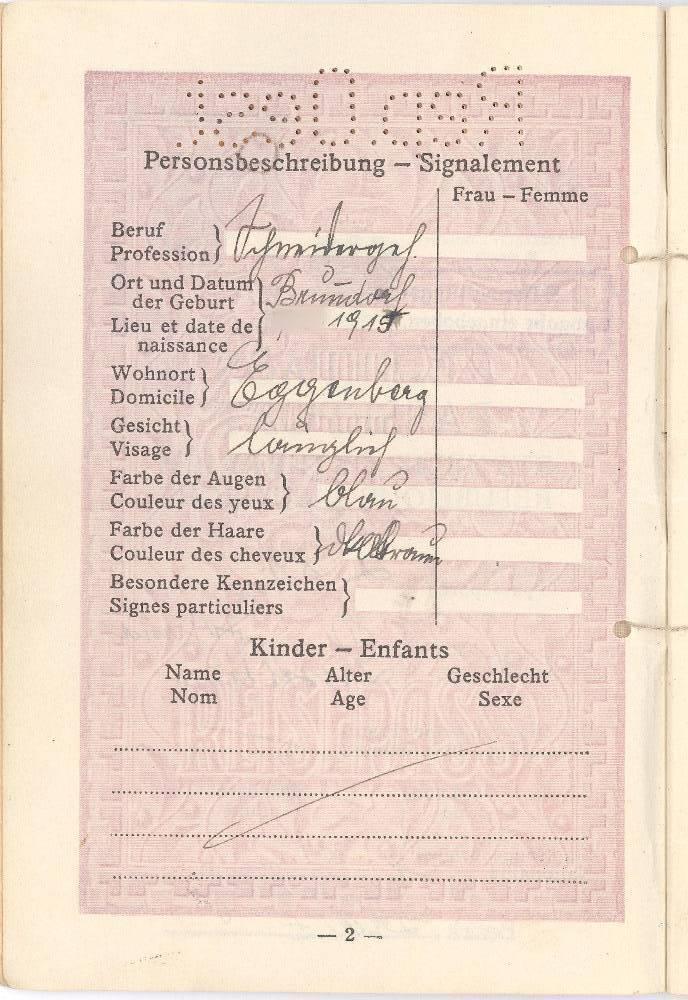 Rep. Öst.
Personsbeschreibung – Signalement
Frau – Femme
Beruf
Profession
Schneidergeh.
Ort und Datum
der Geburt
Brunndorf
Lieu et date de
naissance
1915
Wohnort
Domicile
Eggenberg
Gesicht
Visage
länglich
Farbe der Augen
Couleur des yeux
blau
Farbe der Haare
Couleur des cheveux
Besondere Kennzeichen
Signes particuliers
Kinder – Enfants
Name Alter Geschlecht
Nom Age Sexe
— 2 —